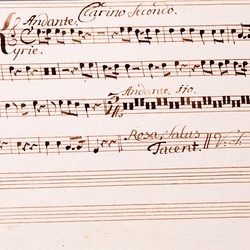 Clarino Secondo.
Andante.
Kyrie.
Andante. 110.
Rosa, Salus
Tacent.